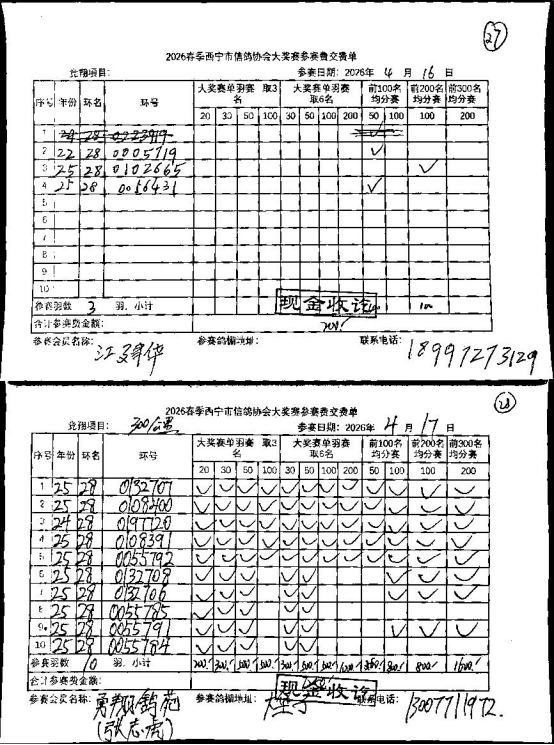 27
2026春季西宁市信鸽协会大奖赛参赛费交费单
竞翔项目: 参赛日期: 2026年 4 月 16 日
序号 年份 环名 环号 大奖赛单羽赛 取3名 大奖赛单羽赛 取6名 前100名均分赛 前200名均分赛 前300名均分赛
20 30 50 100 30 50 100 200 50 100 100 200
1 24 28 0223919 ✓
2 22 28 0005719 ✓
3 25 28 0102665 ✓
4 25 28 0056431 ✓
5
6
7
8
9
10
参赛羽数 3 羽. 小计 100 100
现金收讫
合计参赛费金额: 200.
参赛会员名称: 参赛鸽棚地址: 联系电话: 18997273129
28
2026春季西宁市信鸽协会大奖赛参赛费交费单
竞翔项目: 300公里 参赛日期: 2026年 4 月 17 日
序号 年份 环名 环号 大奖赛单羽赛 取3名 大奖赛单羽赛 取6名 前100名均分赛 前200名均分赛 前300名均分赛
20 30 50 100 30 50 100 200 50 100 100 200
1 25 28 0132707 ✓ ✓ ✓ ✓ ✓ ✓ ✓ ✓ ✓ ✓ ✓ ✓
2 25 28 0108400 ✓ ✓ ✓ ✓ ✓ ✓ ✓ ✓ ✓ ✓ ✓ ✓
3 24 28 0197720 ✓ ✓ ✓ ✓ ✓ ✓ ✓ ✓ ✓ ✓ ✓ ✓
4 25 28 0108391 ✓ ✓ ✓ ✓ ✓ ✓ ✓ ✓ ✓ ✓ ✓ ✓
5 25 28 0055792 ✓ ✓ ✓ ✓ ✓ ✓ ✓ ✓ ✓ ✓ ✓ ✓
6 25 28 0132708 ✓ ✓ ✓ ✓ ✓ ✓ ✓ ✓
7 25 28 0132706 ✓ ✓ ✓ ✓ ✓ ✓ ✓ ✓
8 25 28 0055785 ✓ ✓ ✓ ✓ ✓
9 25 28 0055791 ✓ ✓ ✓ ✓ ✓ ✓ ✓ ✓
10 25 28 0055784 ✓ ✓ ✓ ✓ ✓
参赛羽数 10 羽. 小计 200. 300. 500. 500. 300. 500. 500. 1000. 800. 800. 1600.
现金收讫
合计参赛费金额:
参赛会员名称: 勇翔鸽苑 参赛鸽棚地址: 联系电话: 13007711972.
(张志虎)